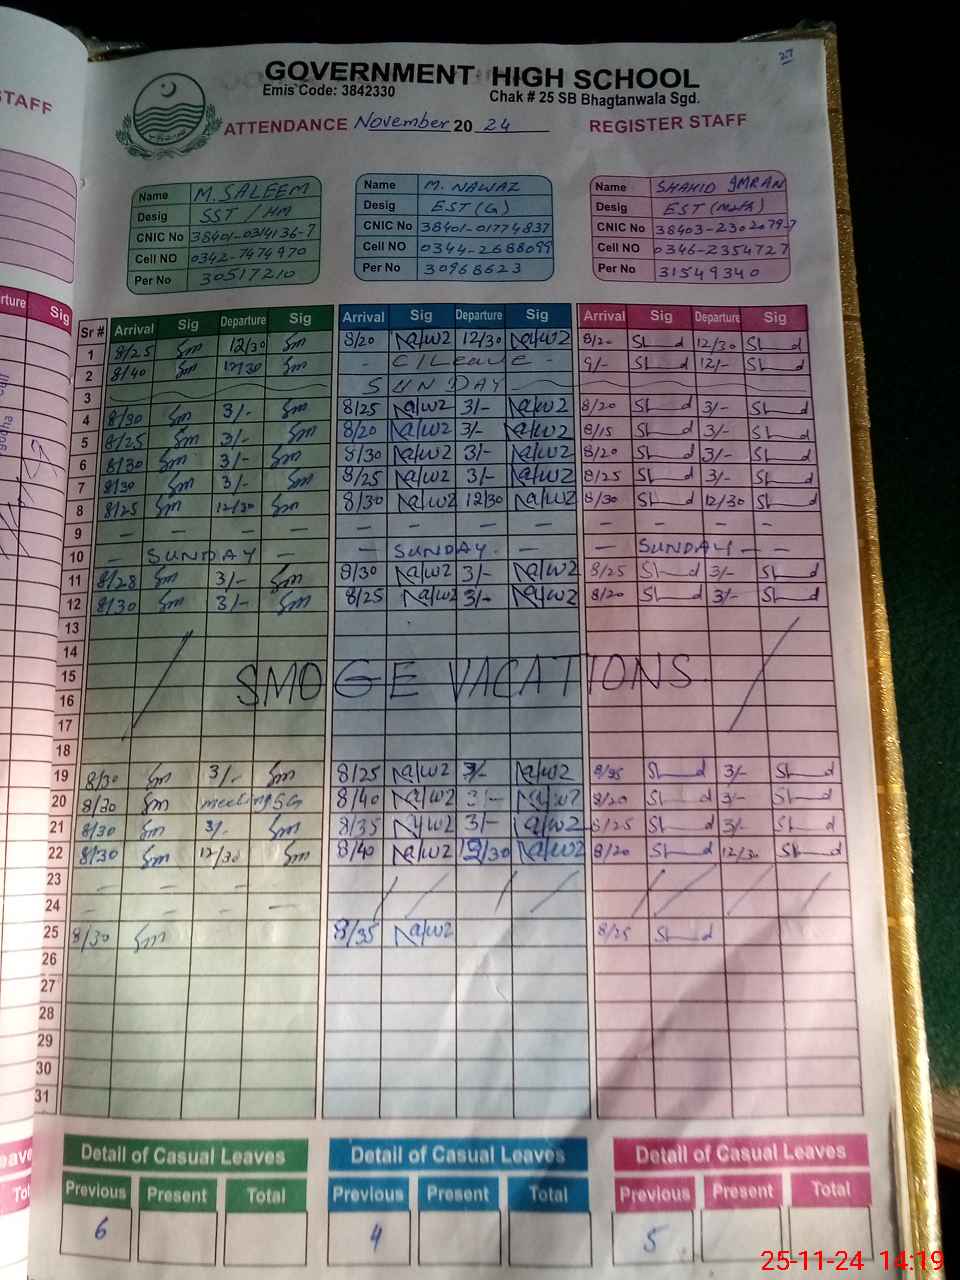 27
STAFF
GOVERNMENT HIGH SCHOOL
Emis Code: 3842330 Chak # 25 SB Bhagtanwala Sgd.
ATTENDANCE November 20 24 REGISTER STAFF
Name M. SALEEM Name M. NAWAZ Name SHAHID IMRAN
Desig SST / HM Desig EST (G) Desig EST (Math)
CNIC No 38401-0314136-7 CNIC No 38401-01774837 CNIC No 38403-2302079-7
Cell NO 0342-7474970 Cell NO 0344-2688099 Cell NO 0346-2354727
Per No 30517210 Per No 30968623 Per No 31549340
rture Sig Sr # Arrival Sig Departure Sig Arrival Sig Departure Sig Arrival Sig Departure Sig
1 8/25 Sm 12/30 Sm 8/20 Nawz 12/30 Nawz 8/20 12/30
2 8/40 Sm 12/30 Sm - C/Leave - 9/- 12/-
3 SUNDAY
4 8/30 Sm 3/- Sm 8/25 Nawz 3/- Nawz 8/20 3/-
5 8/25 Sm 3/- Sm 8/20 Nawz 3/- Nawz 8/15 3/-
6 8/30 Sm 3/- Sm 8/30 Nawz 3/- Nawz 8/20 3/-
7 8/30 Sm 3/- Sm 8/25 Nawz 3/- Nawz 8/25 3/-
8 8/25 Sm 12/30 Sm 8/30 Nawz 12/30 Nawz 8/30 12/30
9 - - - - - - - - - - - -
10 - SUNDAY - - SUNDAY - - SUNDAY - -
11 8/28 Sm 3/- Sm 8/30 Nawz 3/- Nawz 8/25 3/-
12 8/30 Sm 3/- Sm 8/25 Nawz 3/- Nawz 8/20 3/-
13
14
15 SMOGE VACATIONS
16
17
18
19 8/30 Sm 3/- Sm 8/25 Nawz 3/- Nawz 3/-
20 8/30 Sm meeting SG 8/40 Nawz 3/- Nawz 8/20 3/-
21 8/30 Sm 3/- Sm 8/35 Nawz 3/- Nawz 8/25 3/-
22 8/30 Sm 12/30 Sm 8/40 Nawz 12/30 Nawz 8/20 12/30
23 - - - -
24 - - - -
25 8/30 Sm 8/35 Nawz 8/25
26
27
28
29
30
31
Detail of Casual Leaves Detail of Casual Leaves Detail of Casual Leaves
Previous Present Total Previous Present Total Previous Present Total
6 4 5
25-11-24 14:19